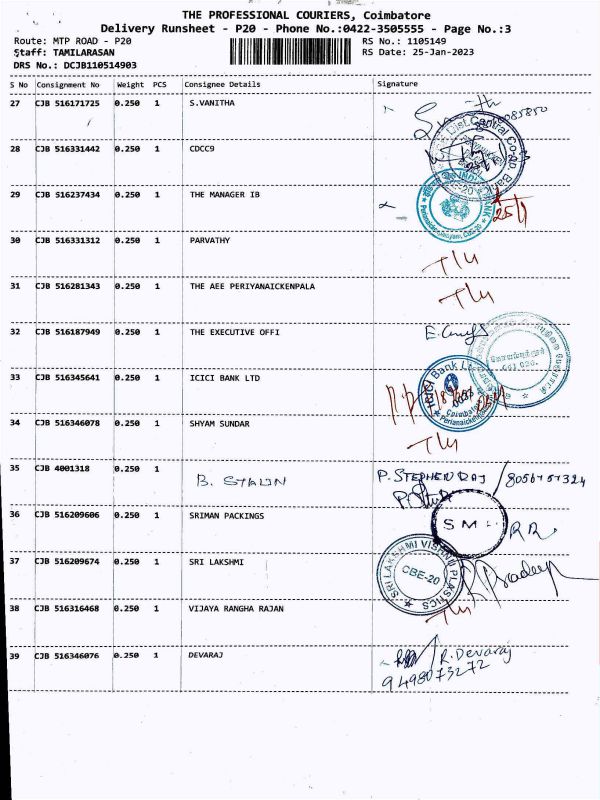 THE PROFESSIONAL COURIERS, Coimbatore
Delivery Runsheet - P20 - Phone No.:0422-3505555 - Page No.:3
Route: MTP ROAD - P20 RS No.: 1105149
Staff: TAMILARASAN RS Date: 25-Jan-2023
DRS No.: DCJB110514903
S No Consignment No Weight PCS Consignee Details Signature
27 CJB 516171725 0.250 1 S.VANITHA
28 CJB 516331442 0.250 1 CDCC9
29 CJB 516237434 0.250 1 THE MANAGER IB
30 CJB 516331312 0.250 1 PARVATHY
31 CJB 516281343 0.250 1 THE AEE PERIYANAICKENPALA
32 CJB 516187949 0.250 1 THE EXECUTIVE OFFI
33 CJB 516345641 0.250 1 ICICI BANK LTD
ICICI Bank
Coimbatore
34 CJB 516346078 0.250 1 SHYAM SUNDAR
35 CJB 4001318 0.250 1 B. STALIN P. STEPHEN RAJ
36 CJB 516209606 0.250 1 SRIMAN PACKINGS
37 CJB 516209674 0.250 1 SRI LAKSHMI
CBE-20
Pradeep
38 CJB 516316468 0.250 1 VIJAYA RANGHA RAJAN
39 CJB 516346076 0.250 1 DEVARAJ R. Devaraj
9498073272